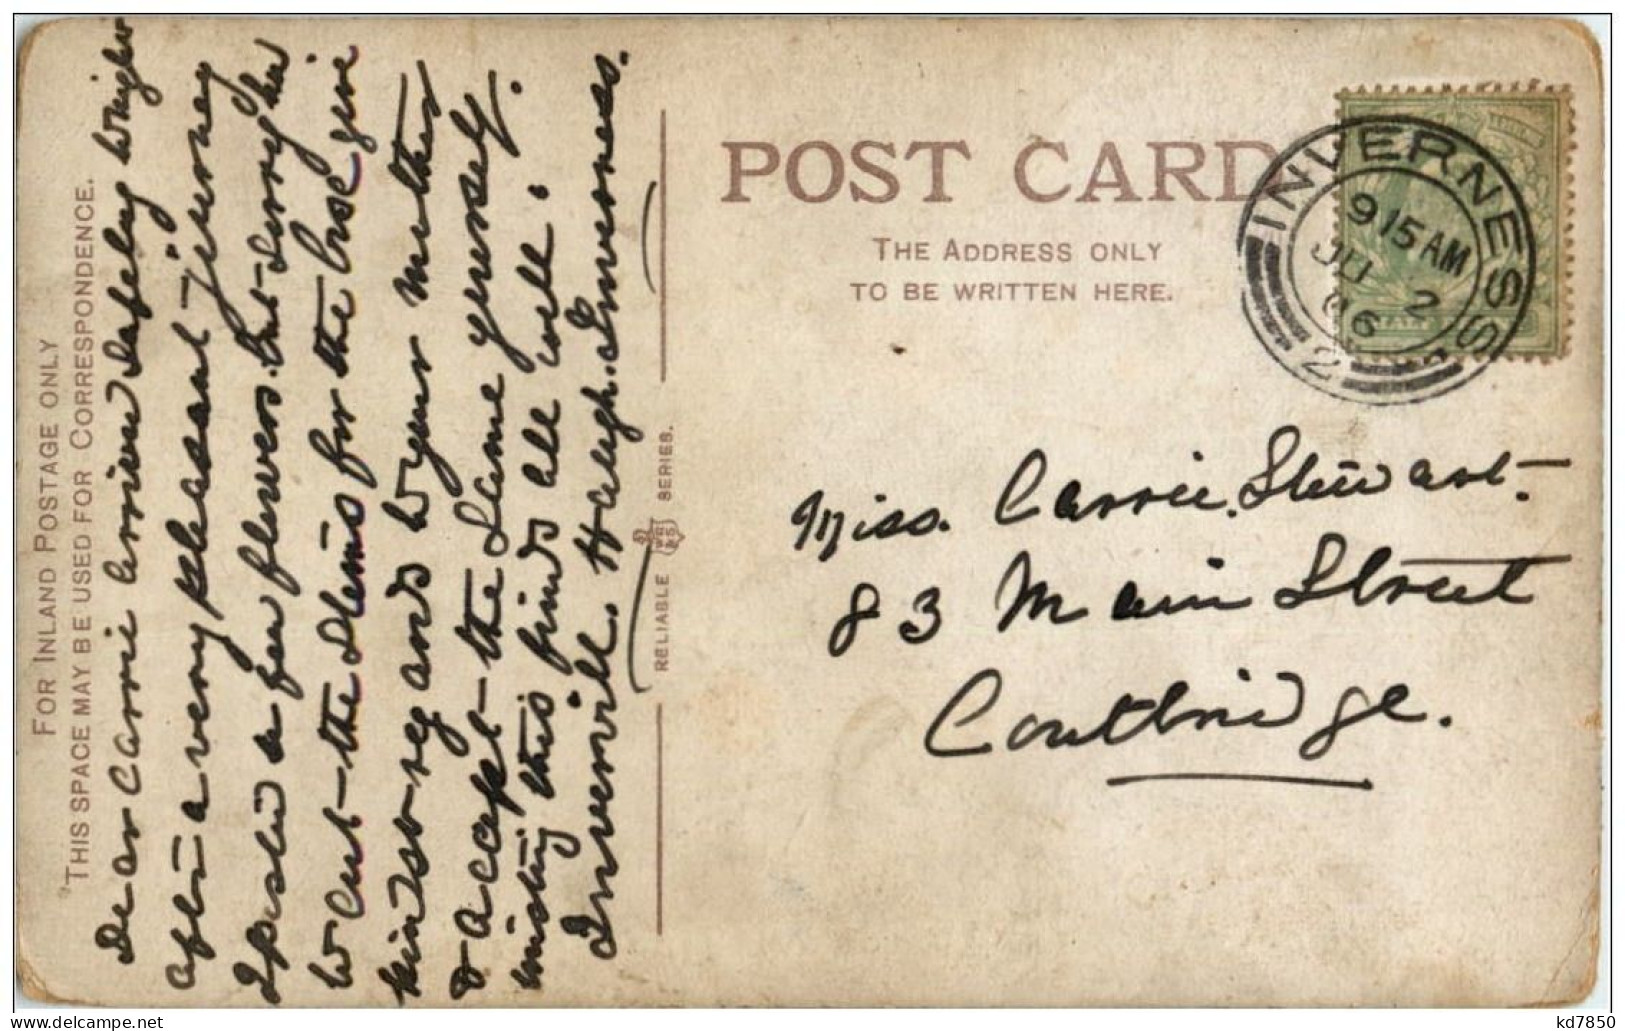 FOR INLAND POSTAGE ONLY
THIS SPACE MAY BE USED FOR CORRESPONDENCE.
Dear Carrie arrived safely
after a very pleasant journey
I posted a few flowers. But sorry
to cut the stems for the box give
kindest regards to your mother
& accept the same yourself.
trusting this finds all well.
Inverwill. Haugh. Inverness.
RELIABLE WR&S SERIES.
POST CARD
THE ADDRESS ONLY
TO BE WRITTEN HERE.
INVERNESS
9 15 AM
JU 2
06
2
Miss. Carrie. Stewart.
83 Main Street
Coatbridge.
kd7850